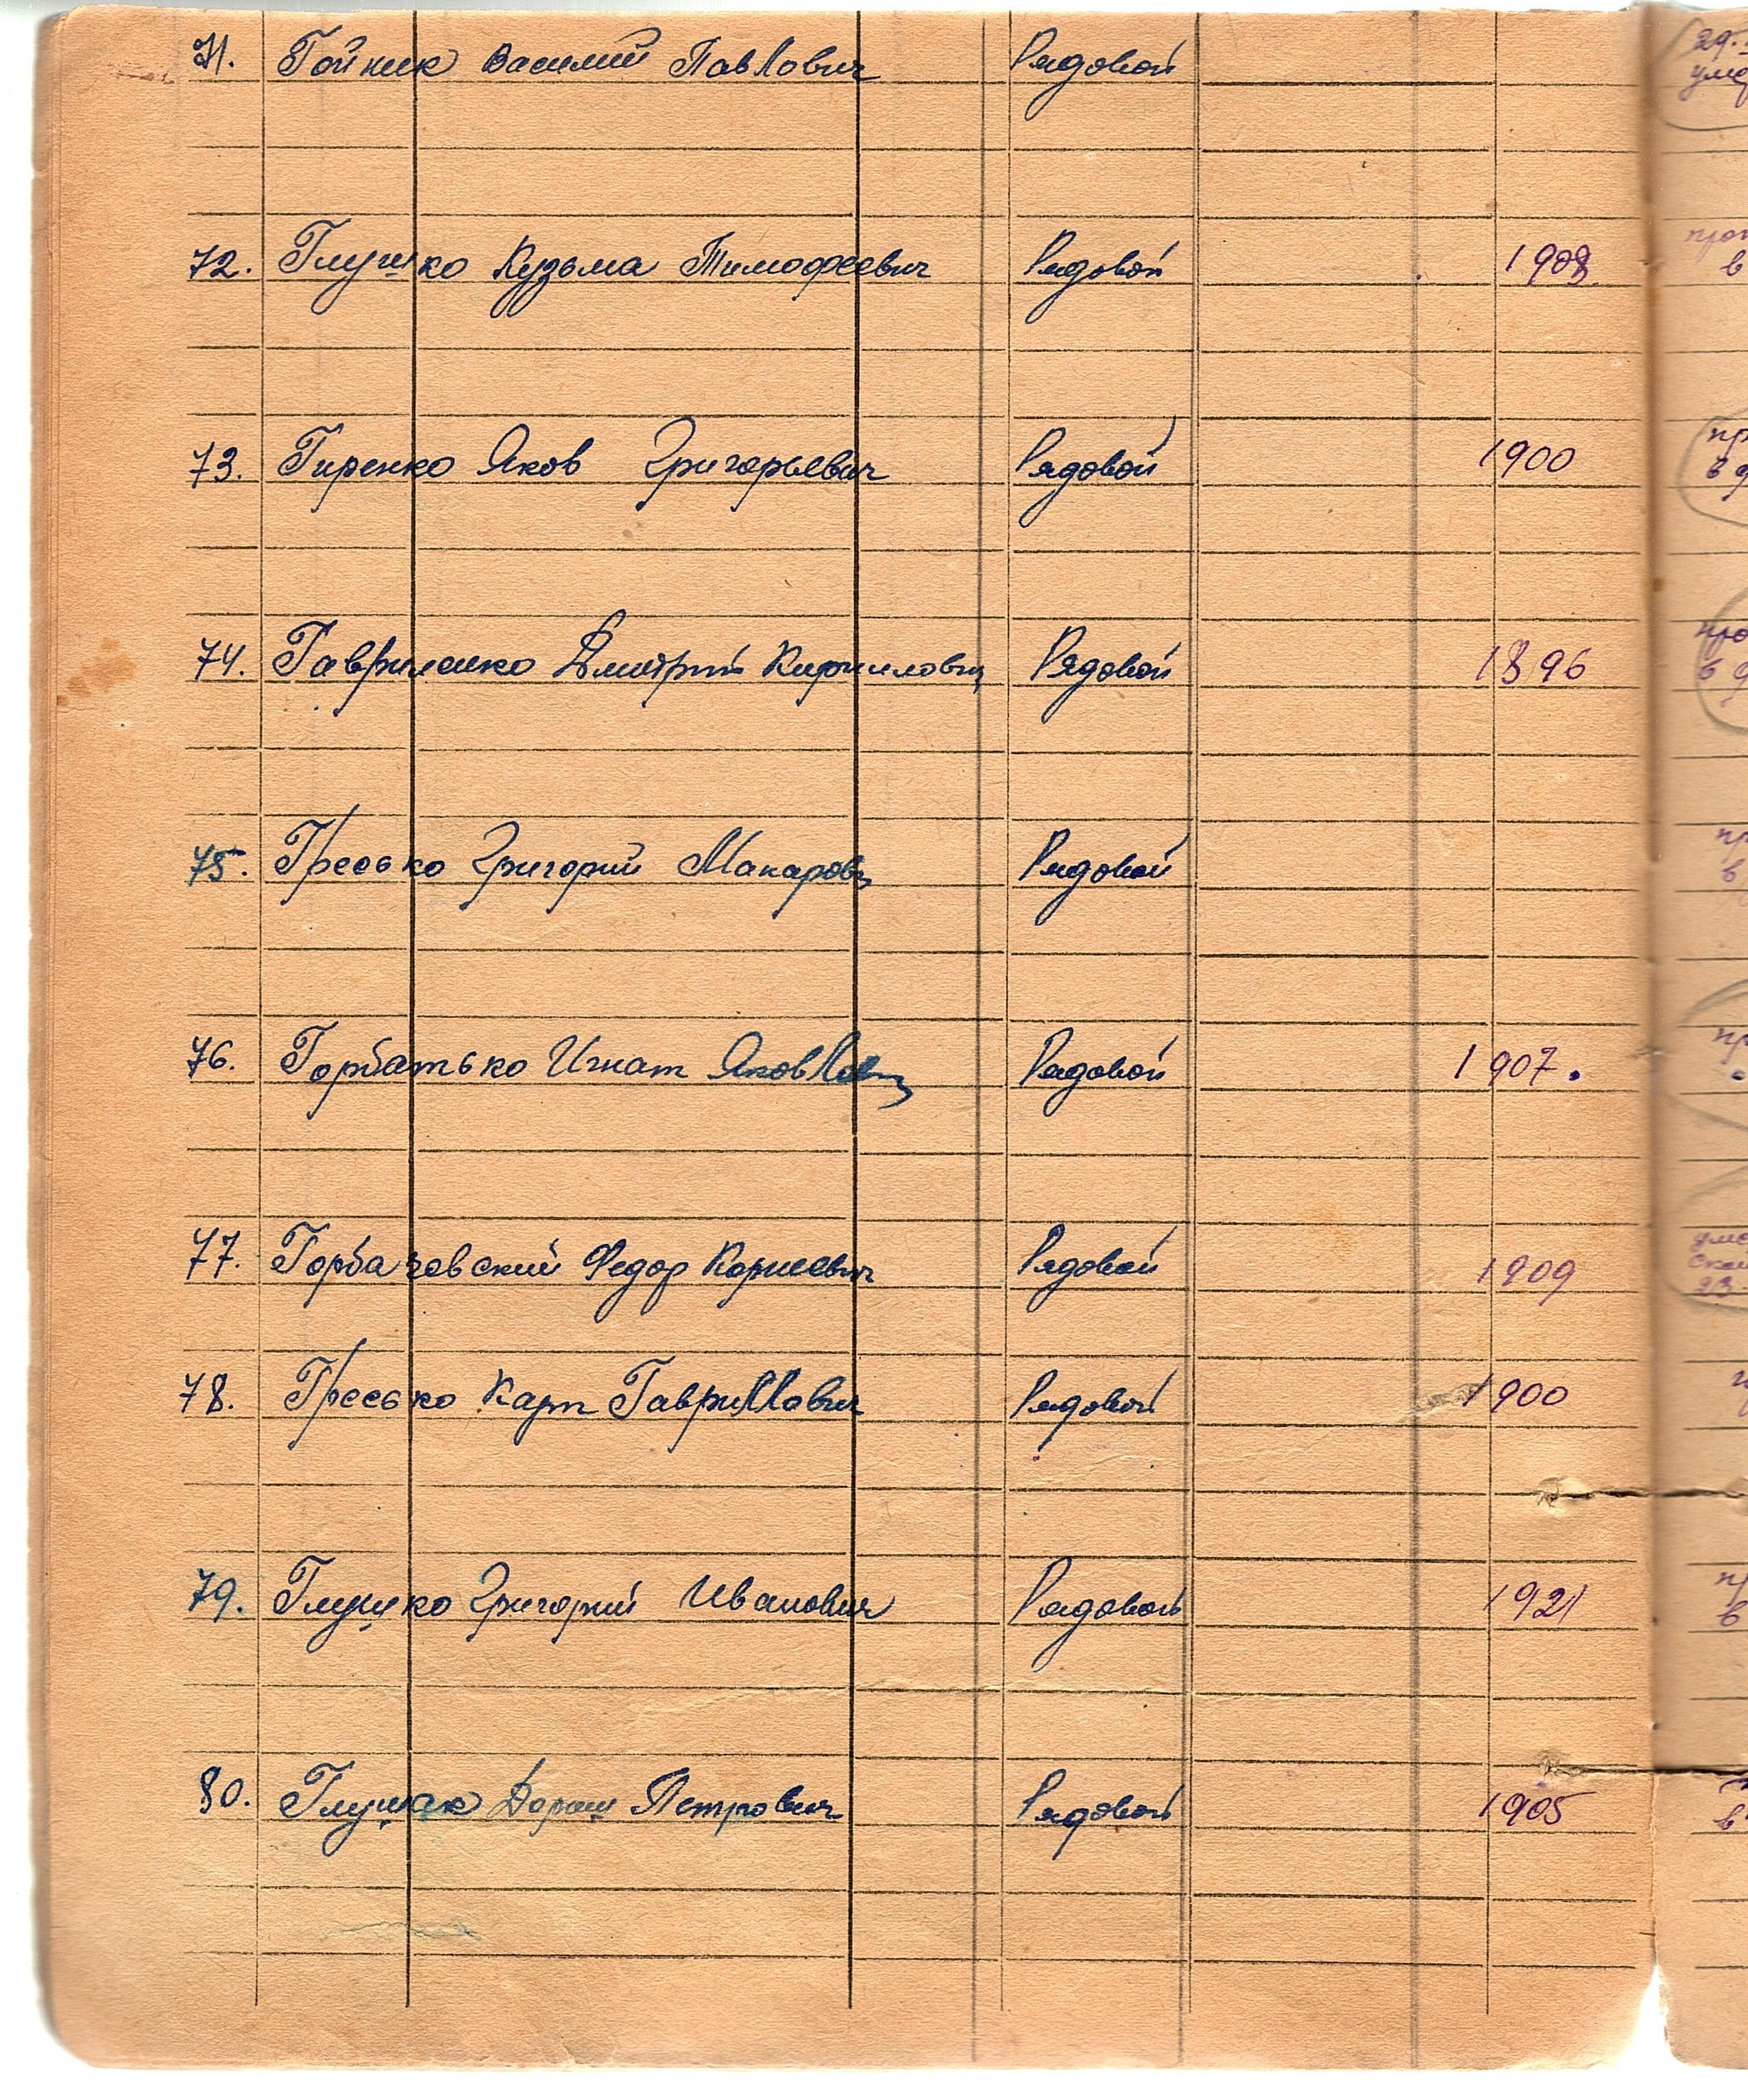 71. Гойник Василий Павлович Рядовой
72. Глушко Кузьма Тимофеевич Рядовой 1908
73. Гиренко Яков Григорьевич Рядовой 1900
74. Гавриленко Дмитрий Кириллович Рядовой 1896
75. Гресько Григорий Макарович Рядовой
76. Горбатько Игнат Яковлевич Рядовой 1907.
77. Горбачевский Федор Корнеевич Рядовой 1909
78. Гресько Карп Гаврилович Рядовой 1900
79. Глушко Григорий Иванович Рядовой 1921
80. Глушак Дорош Петрович Рядовой 1905